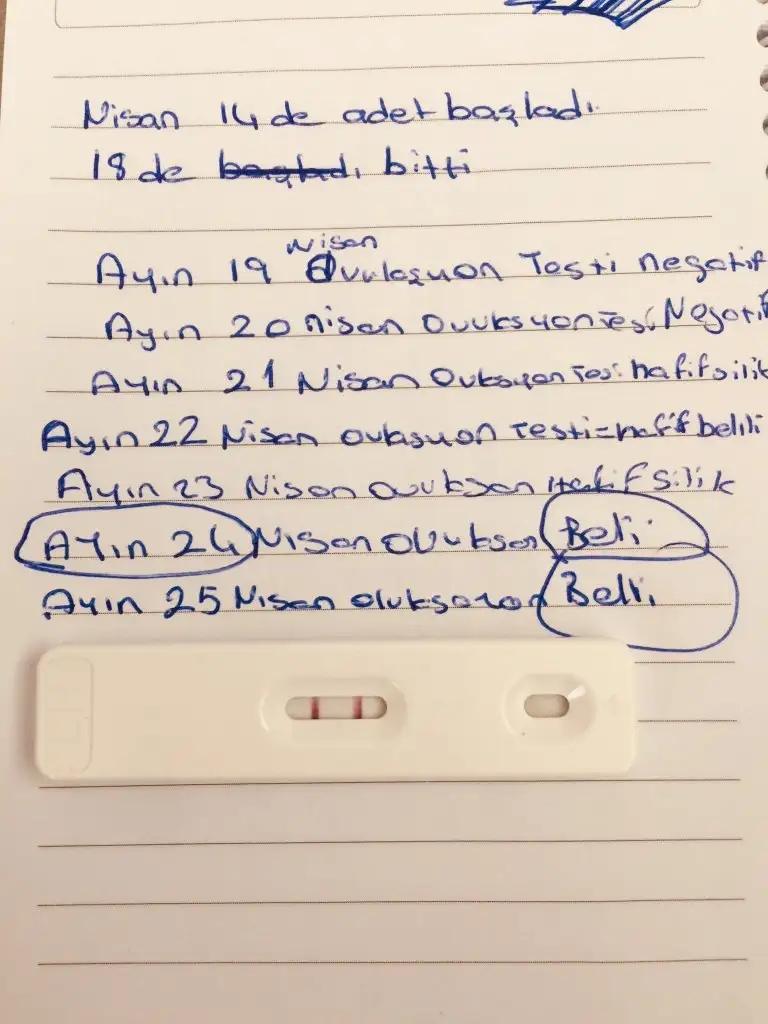 Nisan 14 de adet başladı.
18 de başladı bitti
Nisan
Ayın 19 Ovulasyon Testi negatif
Ayın 20 nisan Ovuksyon Tesi Negatif
Ayın 21 Nisan Ovuksyon Tesi hafif silik
Ayın 22 Nisan ovulasyon testi=hafif belili
Ayın 23 Nison Ovuksyon Hafif Silik
Ayın 24 Nison Ovukson Beli
Ayın 25 Nison Ovuksoyon Belli.